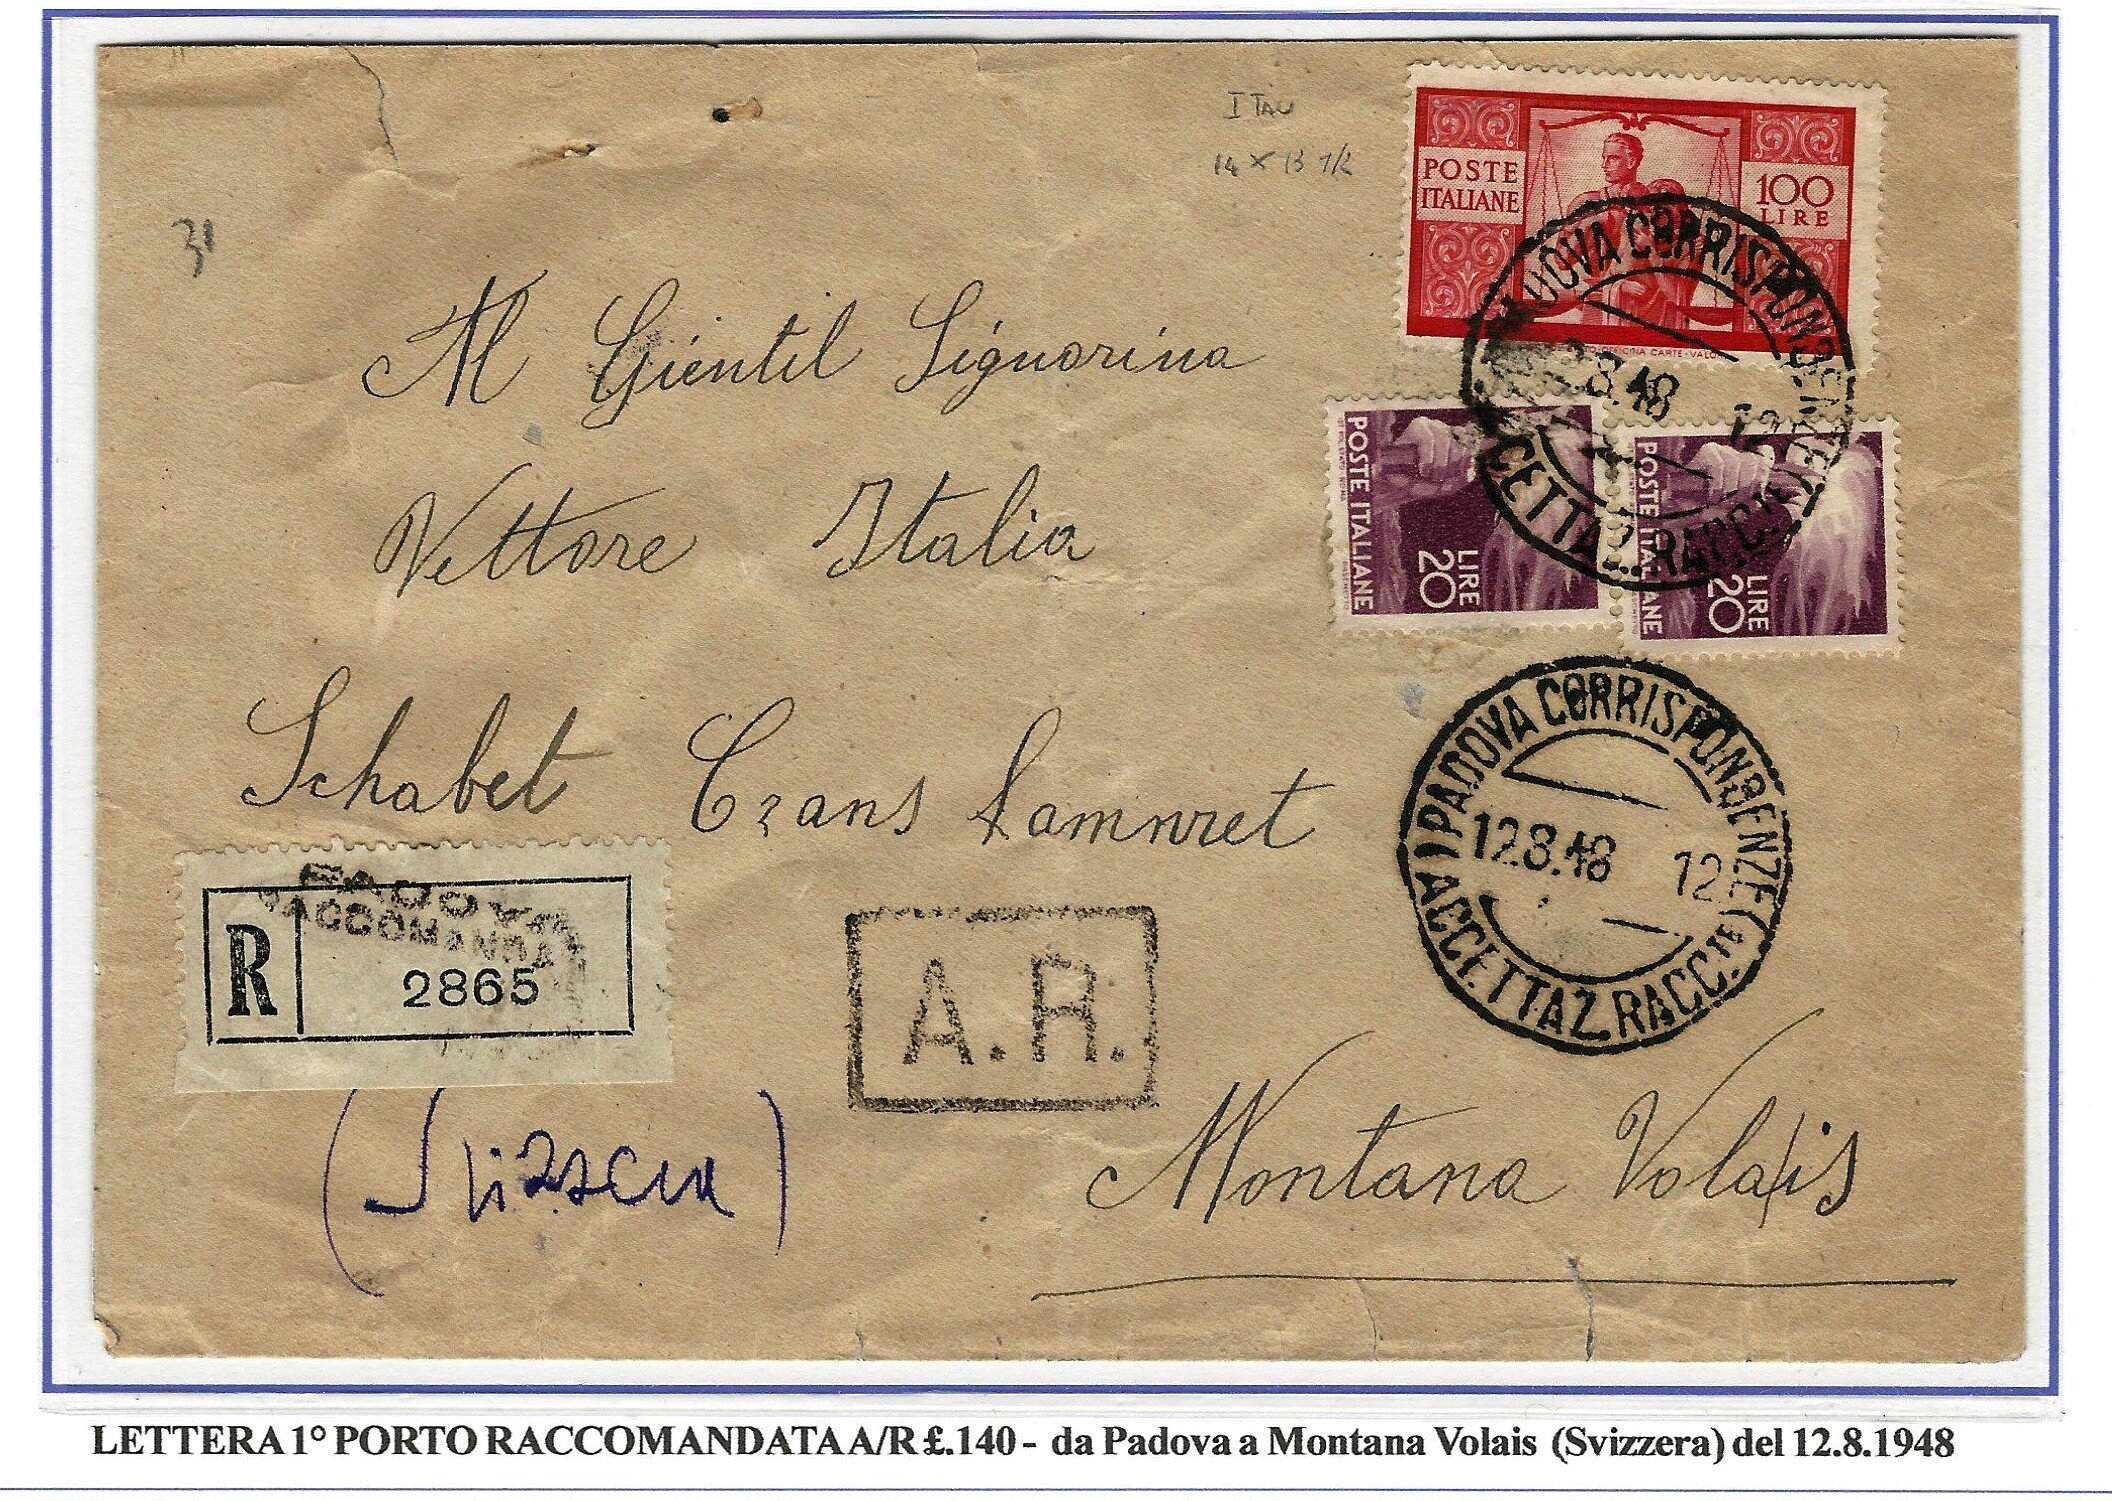 ITAL
14 x 13 1/2
31
POSTE
ITALIANE
100
LIRE
OFFICINA CARTE-VALO
CORRISPONDENZE
8.48 12
CETTAZ. RACC
POSTE ITALIANE
LIRE
20
POSTE ITALIANE
LIRE
20
Al Gientil Signorina
Vettore Italia
Schabet Crans
PADOVA CORRISPONDENZE
12.8.48 12
(A) ACCETTAZ. RACC.TE
PADOVA
RACCOMANDA
R
2865
A.R.
(Svizzera)
Montana Volais
LETTERA 1° PORTO RACCOMANDATA A/R £.140 - da Padova a Montana Volais (Svizzera) del 12.8.1948